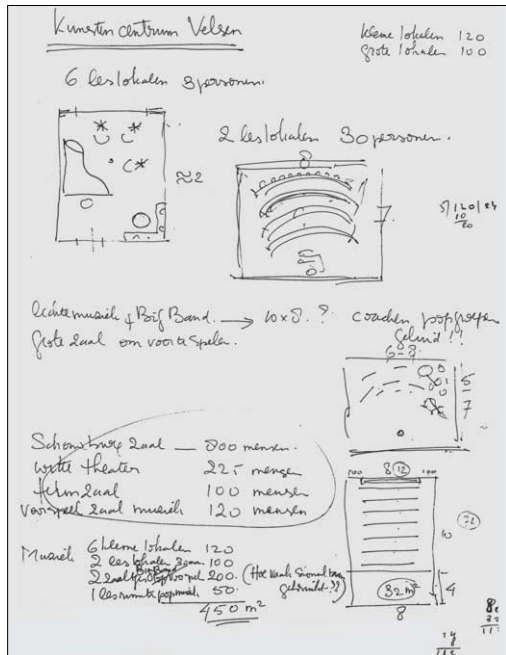 Kunsten centrum Velsen
kleine lokalen 120
grote lokalen 100
6 leslokalen 3 personen.
2 leslokalen 30 personen.
8
≈2
7
lichte muziek + Big Band. → 10 x 8. ? coachen popgroepen
geluid!!
grote zaal om voor te spelen.
6-8
5
7
Schouwburg zaal — 800 mensen.
witte theater 225 mensen
filmzaal 100 mensen
voorspeel zaal muziek 120 mensen
8 (12)
(72)
10
Muziek 6 kleine lokalen 120
2 leslokalen 100
Big Band
voorspel 200. (Hoe vaak
gebruikt??
1 lesruimte popmuziek 50.
450 m²
32 m²
4
8